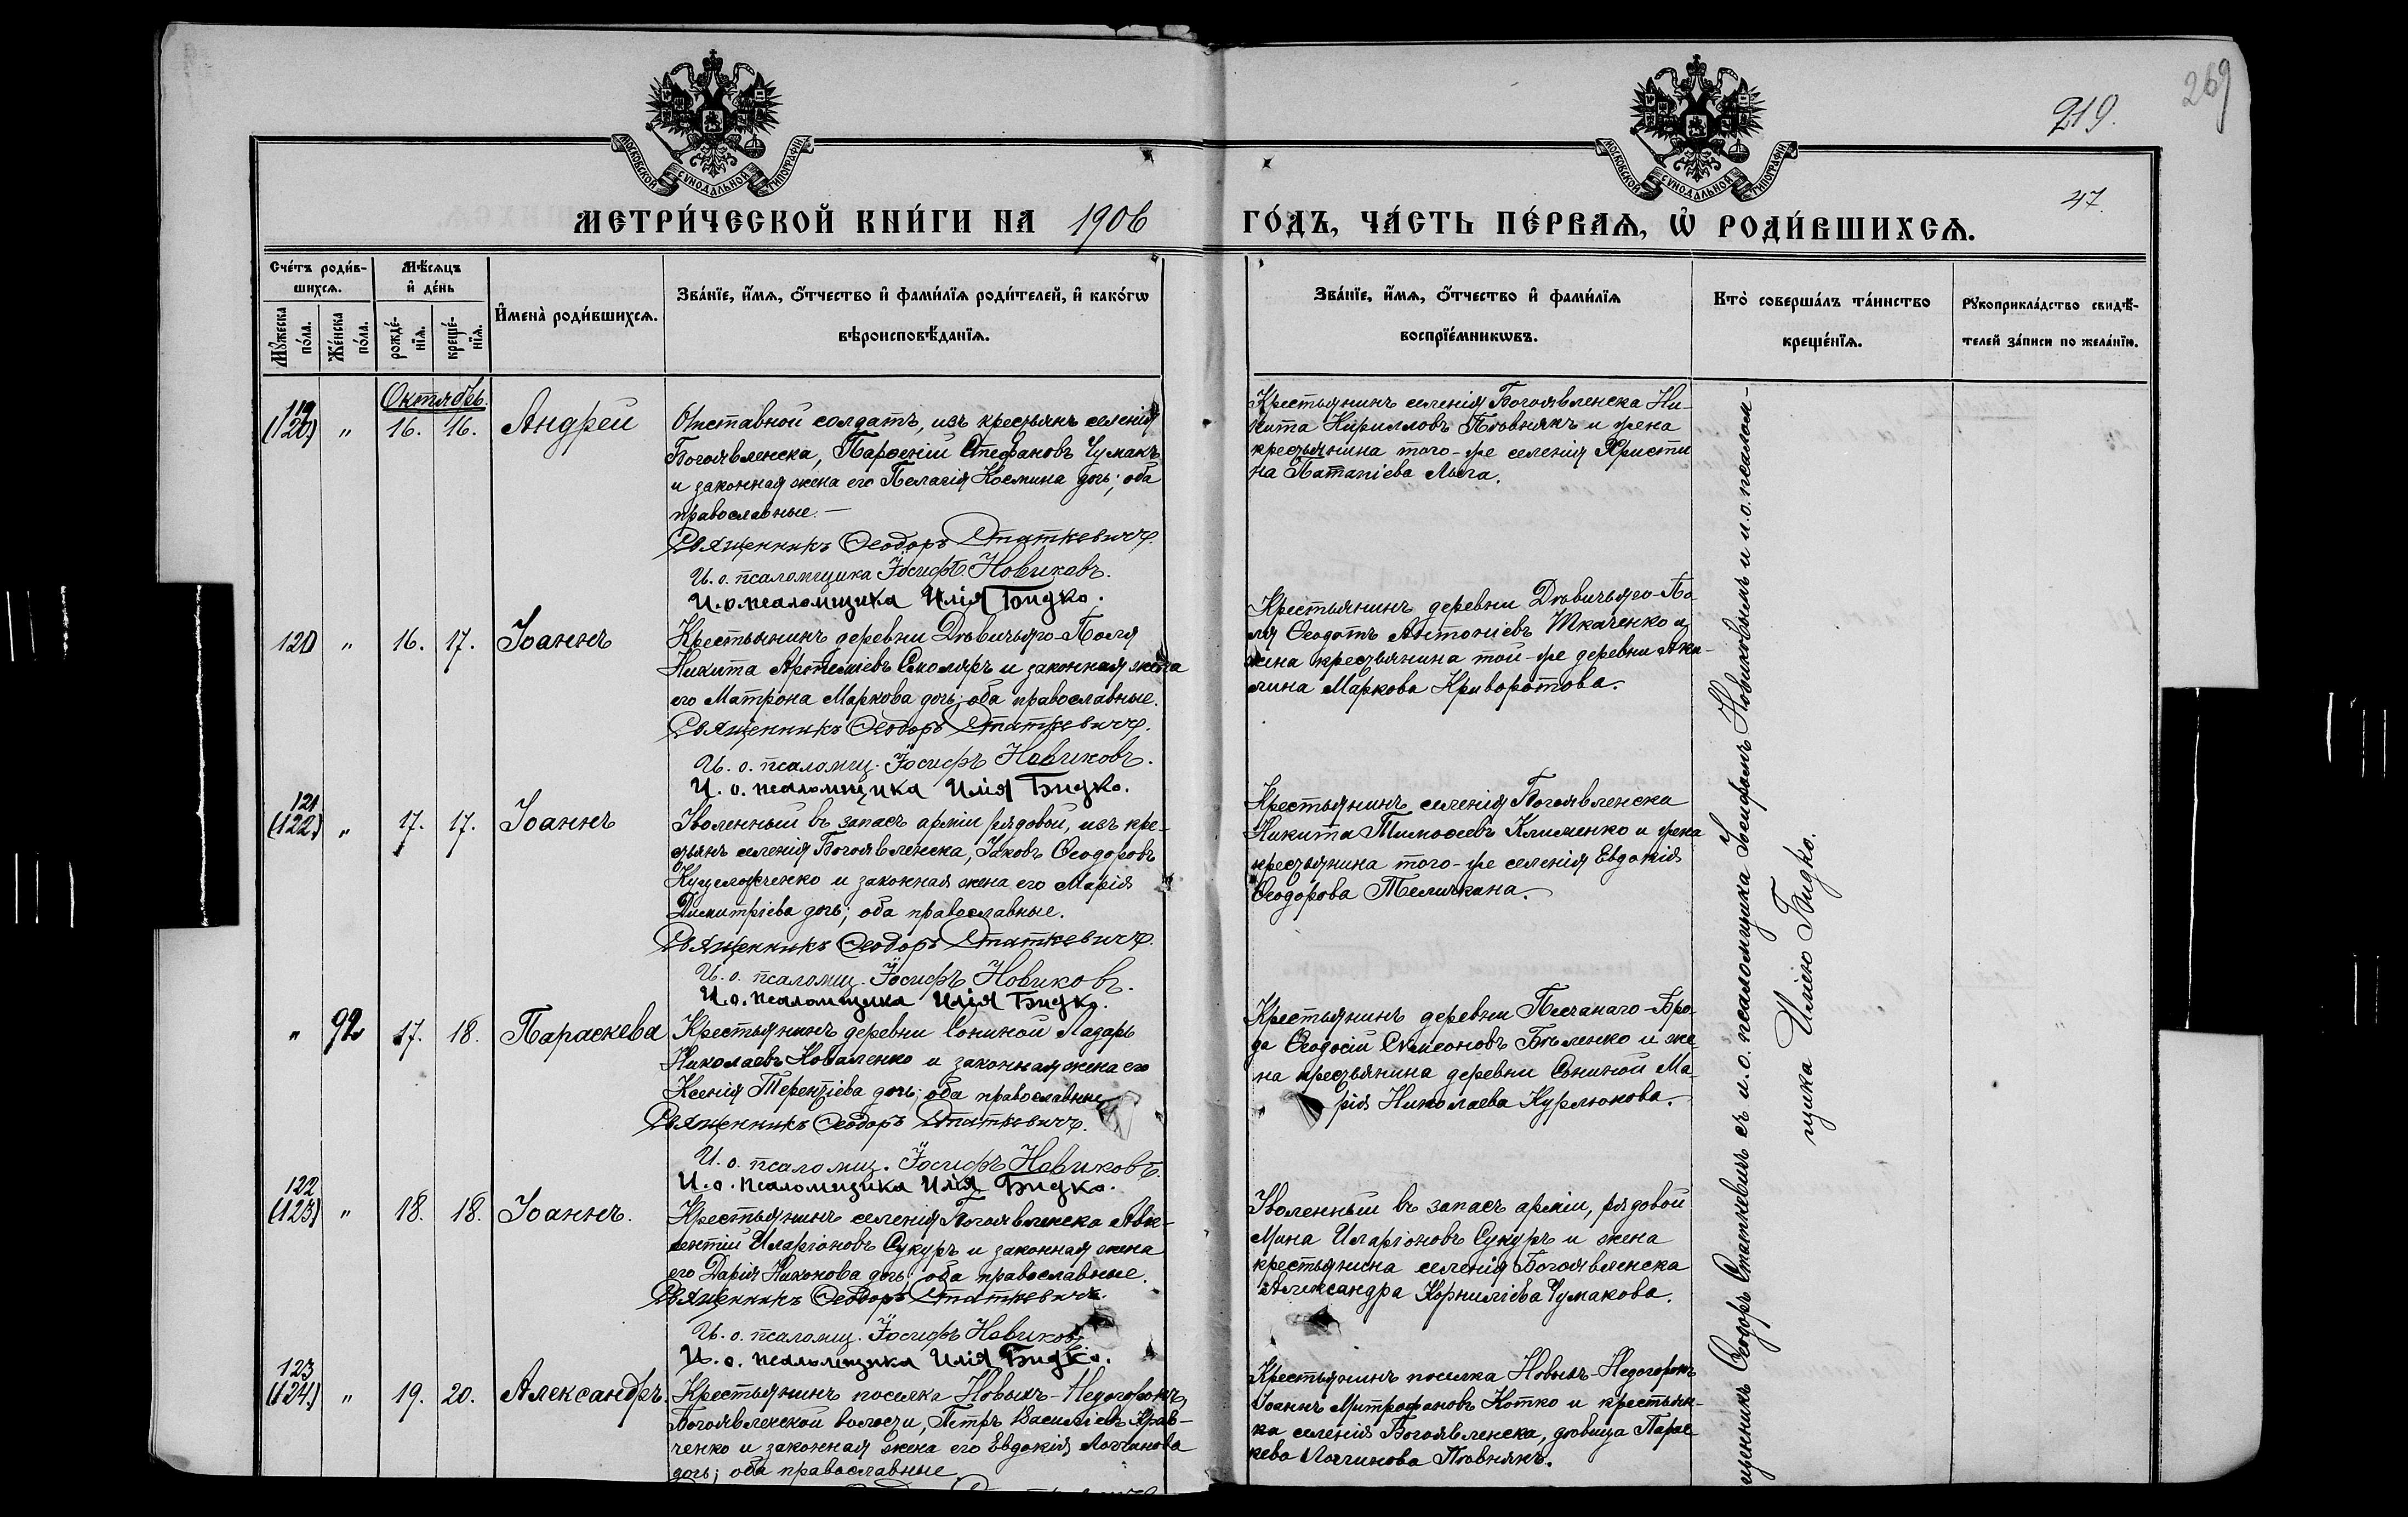 269
219.
47.
МОСКОВСКОЙ СѴНОДАЛЬНОЙ ТИПОГРАФІИ
МОСКОВСКОЙ СѴНОДАЛЬНОЙ ТИПОГРАФІИ
МЕТРИ́ЧЕСКОЙ КНИ́ГИ НА 1906 ГО́ДЪ, ЧА́СТЬ ПЕ́РВАѦ, Ѡ҆ РОДИ́ВШИХСѦ.
Сче́тъ роди́в-
шихсѧ.
Мꙋ́жеска по́ла.
Же́нска по́ла.
Мѣ́сѧцъ
и҆ де́нь
рожде́-
нїѧ.
креще́-
нїѧ.
И҆мена̀ роди́вшихсѧ.
Зва́нїе, и҆́мѧ, ѻ҆́тчество и҆ фами́лїѧ роди́телей, и҆ како́гѡ
вѣроисповѣ́данїѧ.
Зва́нїе, и҆́мѧ, ѻ҆́тчество и҆ фами́лїѧ
воспрїе́мникѡвъ.
Кто̀ соверша́лъ та́инство
креще́нїѧ.
Рꙋкоприкла́дство свидѣ́-
телей за́писи по жела́нїю.
Октябрь.
119
(120) " 16. 16. Андрей
Отставной солдатъ, изъ крестьянъ селенія
Богоявленска, Парѳеній Стефановъ Чумакъ
и законная жена его Пелагія Космина дочь; оба
православные.—
Священникъ Ѳеодоръ Статкевичъ.
И. о. псаломщика Іосифъ Новиковъ.
И. о. псаломщика Илія Бидко.
Крестьянинъ селенія Богоявленска Ни-
кита Кирилловъ Пловнякъ и жена
крестьянина того-же селенія Христи
на Патапіева Льга.
120 " 16. 17. Іоаннъ
Крестьянинъ деревни Дѣвичьяго-Поля
Никита Артеміевъ Смоляръ и законная жена
его Матрона Маркова дочь; оба православные.
Священникъ Ѳеодоръ Статкевичъ.
И. о. псаломщ. Іосифъ Новиковъ.
И. о. псаломщика Илія Бидко.
Крестьянинъ деревни Дѣвичьяго-По-
ля Ѳеодотъ Антоніевъ Ткаченко и
жена крестьянина той-же деревни Аки-
лина Маркова Криворотова.
121
(122) " 17. 17. Іоаннъ
Уволенный въ запасъ арміи рядовой, изъ кре-
стьянъ селенія Богоявленска, Іаковъ Ѳеодоровъ
и законная жена его Марія
Димитріева дочь; оба православные.
Священникъ Ѳеодоръ Статкевичъ.
И. о. псаломщ. Іосифъ Новиковъ.
И. о. псаломщика Илія Бидко.
Крестьянинъ селенія Богоявленска
Никита Тимоѳеевъ Клименко и жена
крестьянина того-же селенія Евдокія
Ѳеодорова Теличкана.
" 92 17. 18. Параскева
Крестьянинъ деревни Сониной Лазарь
Николаевъ Коваленко и законная жена его
Ксенія Терентіева дочь; оба православные
Священникъ Ѳеодоръ Статкевичъ.
И. о. псаломщ. Іосифъ Новиковъ.
И. о. псаломщика Илія Бидко.
Крестьянинъ деревни Песчанаго-Бро-
да Ѳеодосій Симеоновъ Бѣленко и же-
на крестьянина деревни Сониной Ма-
рія Николаева Курлюкова.
122
(123) " 18. 18. Іоаннъ.
Крестьянинъ селенія Богоявленска Авк-
сентій Иларіоновъ Сукуръ и законная жена
его Дарія Никонова дочь; оба православные.
Священникъ Ѳеодоръ Статкевичъ.
И. о. псаломщ. Іосифъ Новиковъ
И. о. псаломщика Илія Бидко.
Уволенный въ запасъ арміи, рядовой
Мина Иларіоновъ Сукуръ и жена
крестьянина селенія Богоявленска
Александра Корниліева Чумакова.
123
(124) " 19. 20. Александръ.
Крестьянинъ поселка Новыхъ-Недогорокъ,
Богоявленской волости, Петръ Василіевъ Крав-
ченко и законная жена его Евдокія Логгинова
дочь; оба православные.
Крестьянинъ поселка Новыхъ-Недогорокъ
Іоаннъ Митрофановъ Котко и крестьян-
ка селенія Богоявленска, дѣвица Парас
кева Логгинова Пловнякъ.
щенникъ Ѳеодоръ Статкевичъ съ и. о. псаломщика Іосифомъ Новиковымъ и и. о. псалом-
щика Иліею Бидко.